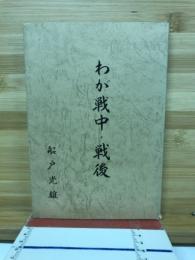 わが戦中・戦後
船戸光雄